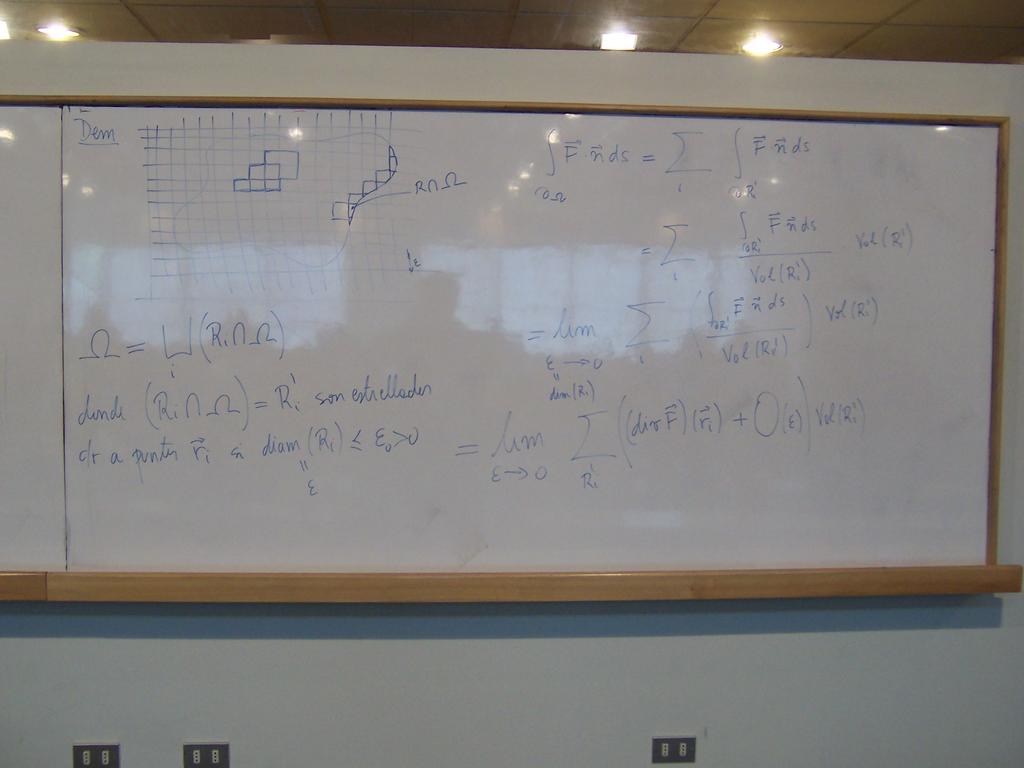 Dem
R∩Ω
ε
Ω = ⊔_i (R_i ∩ Ω)
donde (R_i ∩ Ω) = R_i' son estrellados
c/r a puntos r⃗_i si diam(R_i) ≤ ε_0 > 0
"
ε
∫_{∂Ω} F⃗ · n⃗ ds = Σ_i ∫_{∂R_i'} F⃗ · n⃗ ds
= Σ_i (∫_{∂R_i'} F⃗ n⃗ ds) / Vol(R_i') Vol(R_i')
= lim_{ε→0} Σ_i ( (∫_{∂R_i'} F⃗ n⃗ ds) / Vol(R_i') ) Vol(R_i')
"
diam(R_i)
= lim_{ε→0} Σ_{R_i'} ((div F⃗)(r⃗_i) + O(ε)) Vol(R_i')